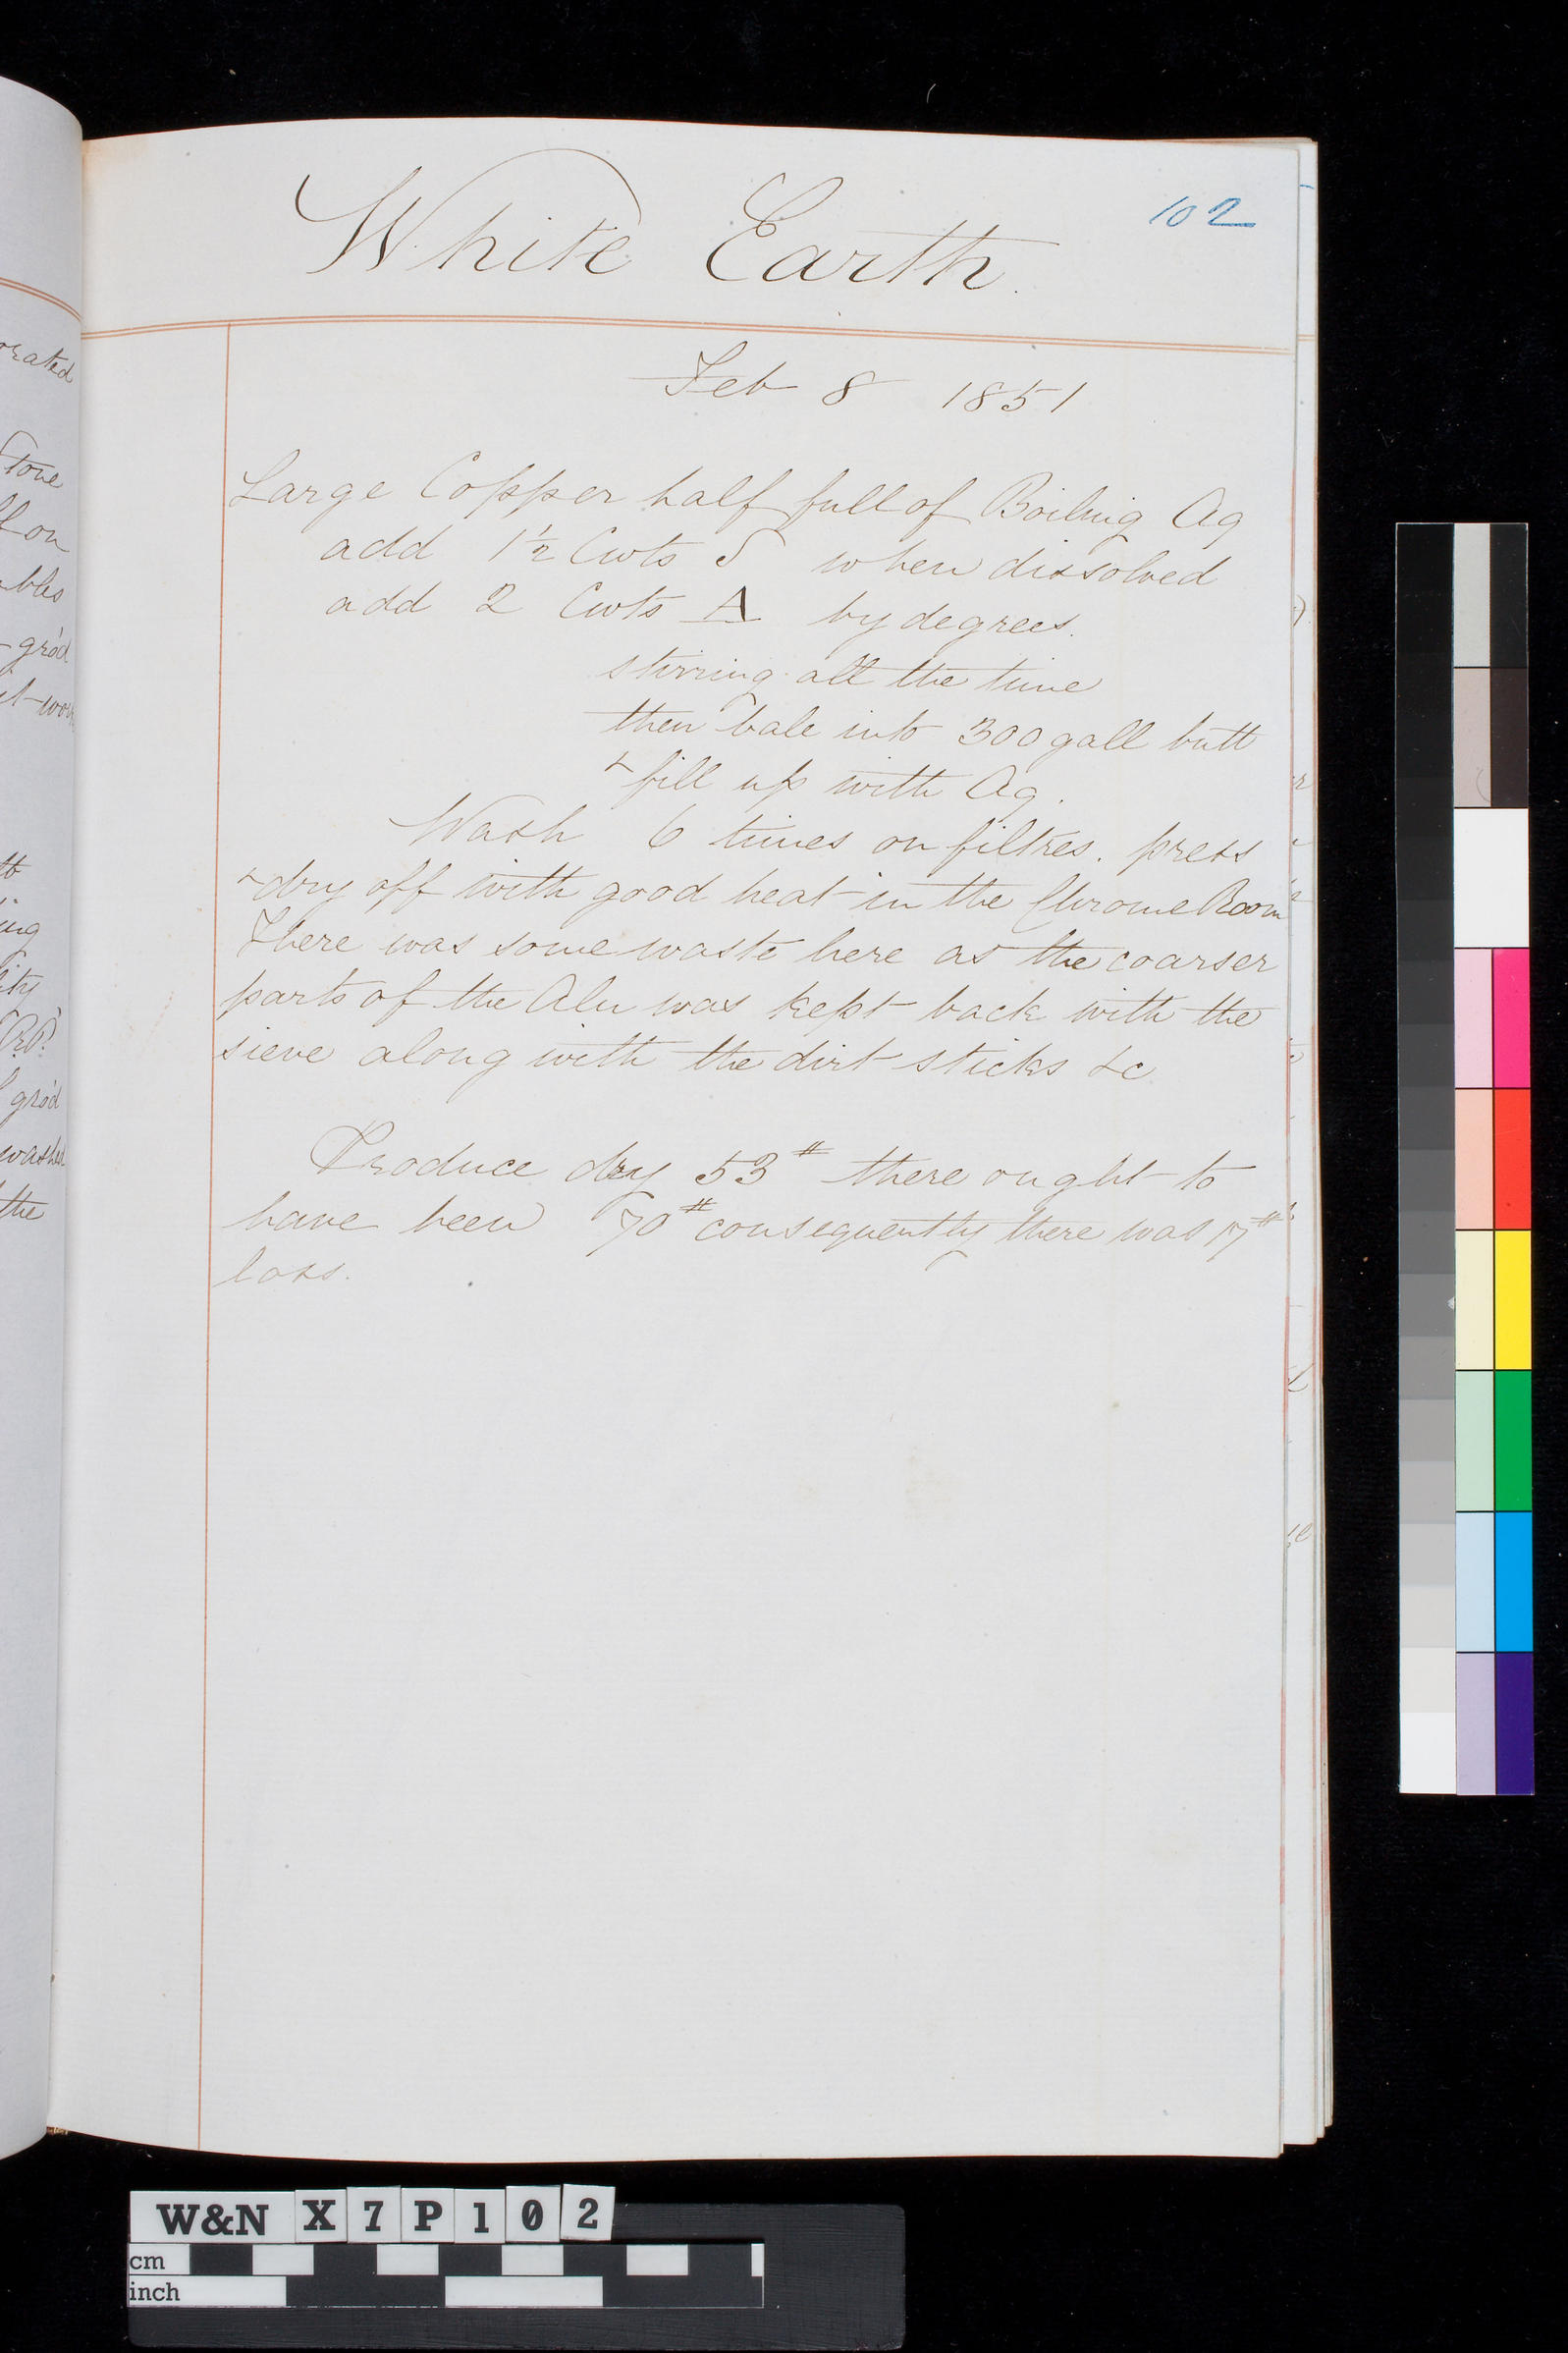 White Earth.
102
Feb 8 1851
Large Copper half full of Boiling Aq
add 1½ Cwts S when dissolved
add 2 Cwts A by degrees.
stirring all the time
then bale into 300 gall butt
& fill up with Aq.
Wash 6 times on filtres. press
& dry off with good heat in the Chrome Room
There was some waste here as the coarser
parts of the Alu was kept back with the
sieve along with the dirt sticks &c
Produce dry 53# there ought to
have been 70# consequently there was 17#
loss.
orated
Stone
on
bles
gro'd
it
ing
gro'd
washed
the
W&N X 7 P 1 0 2
cm
inch